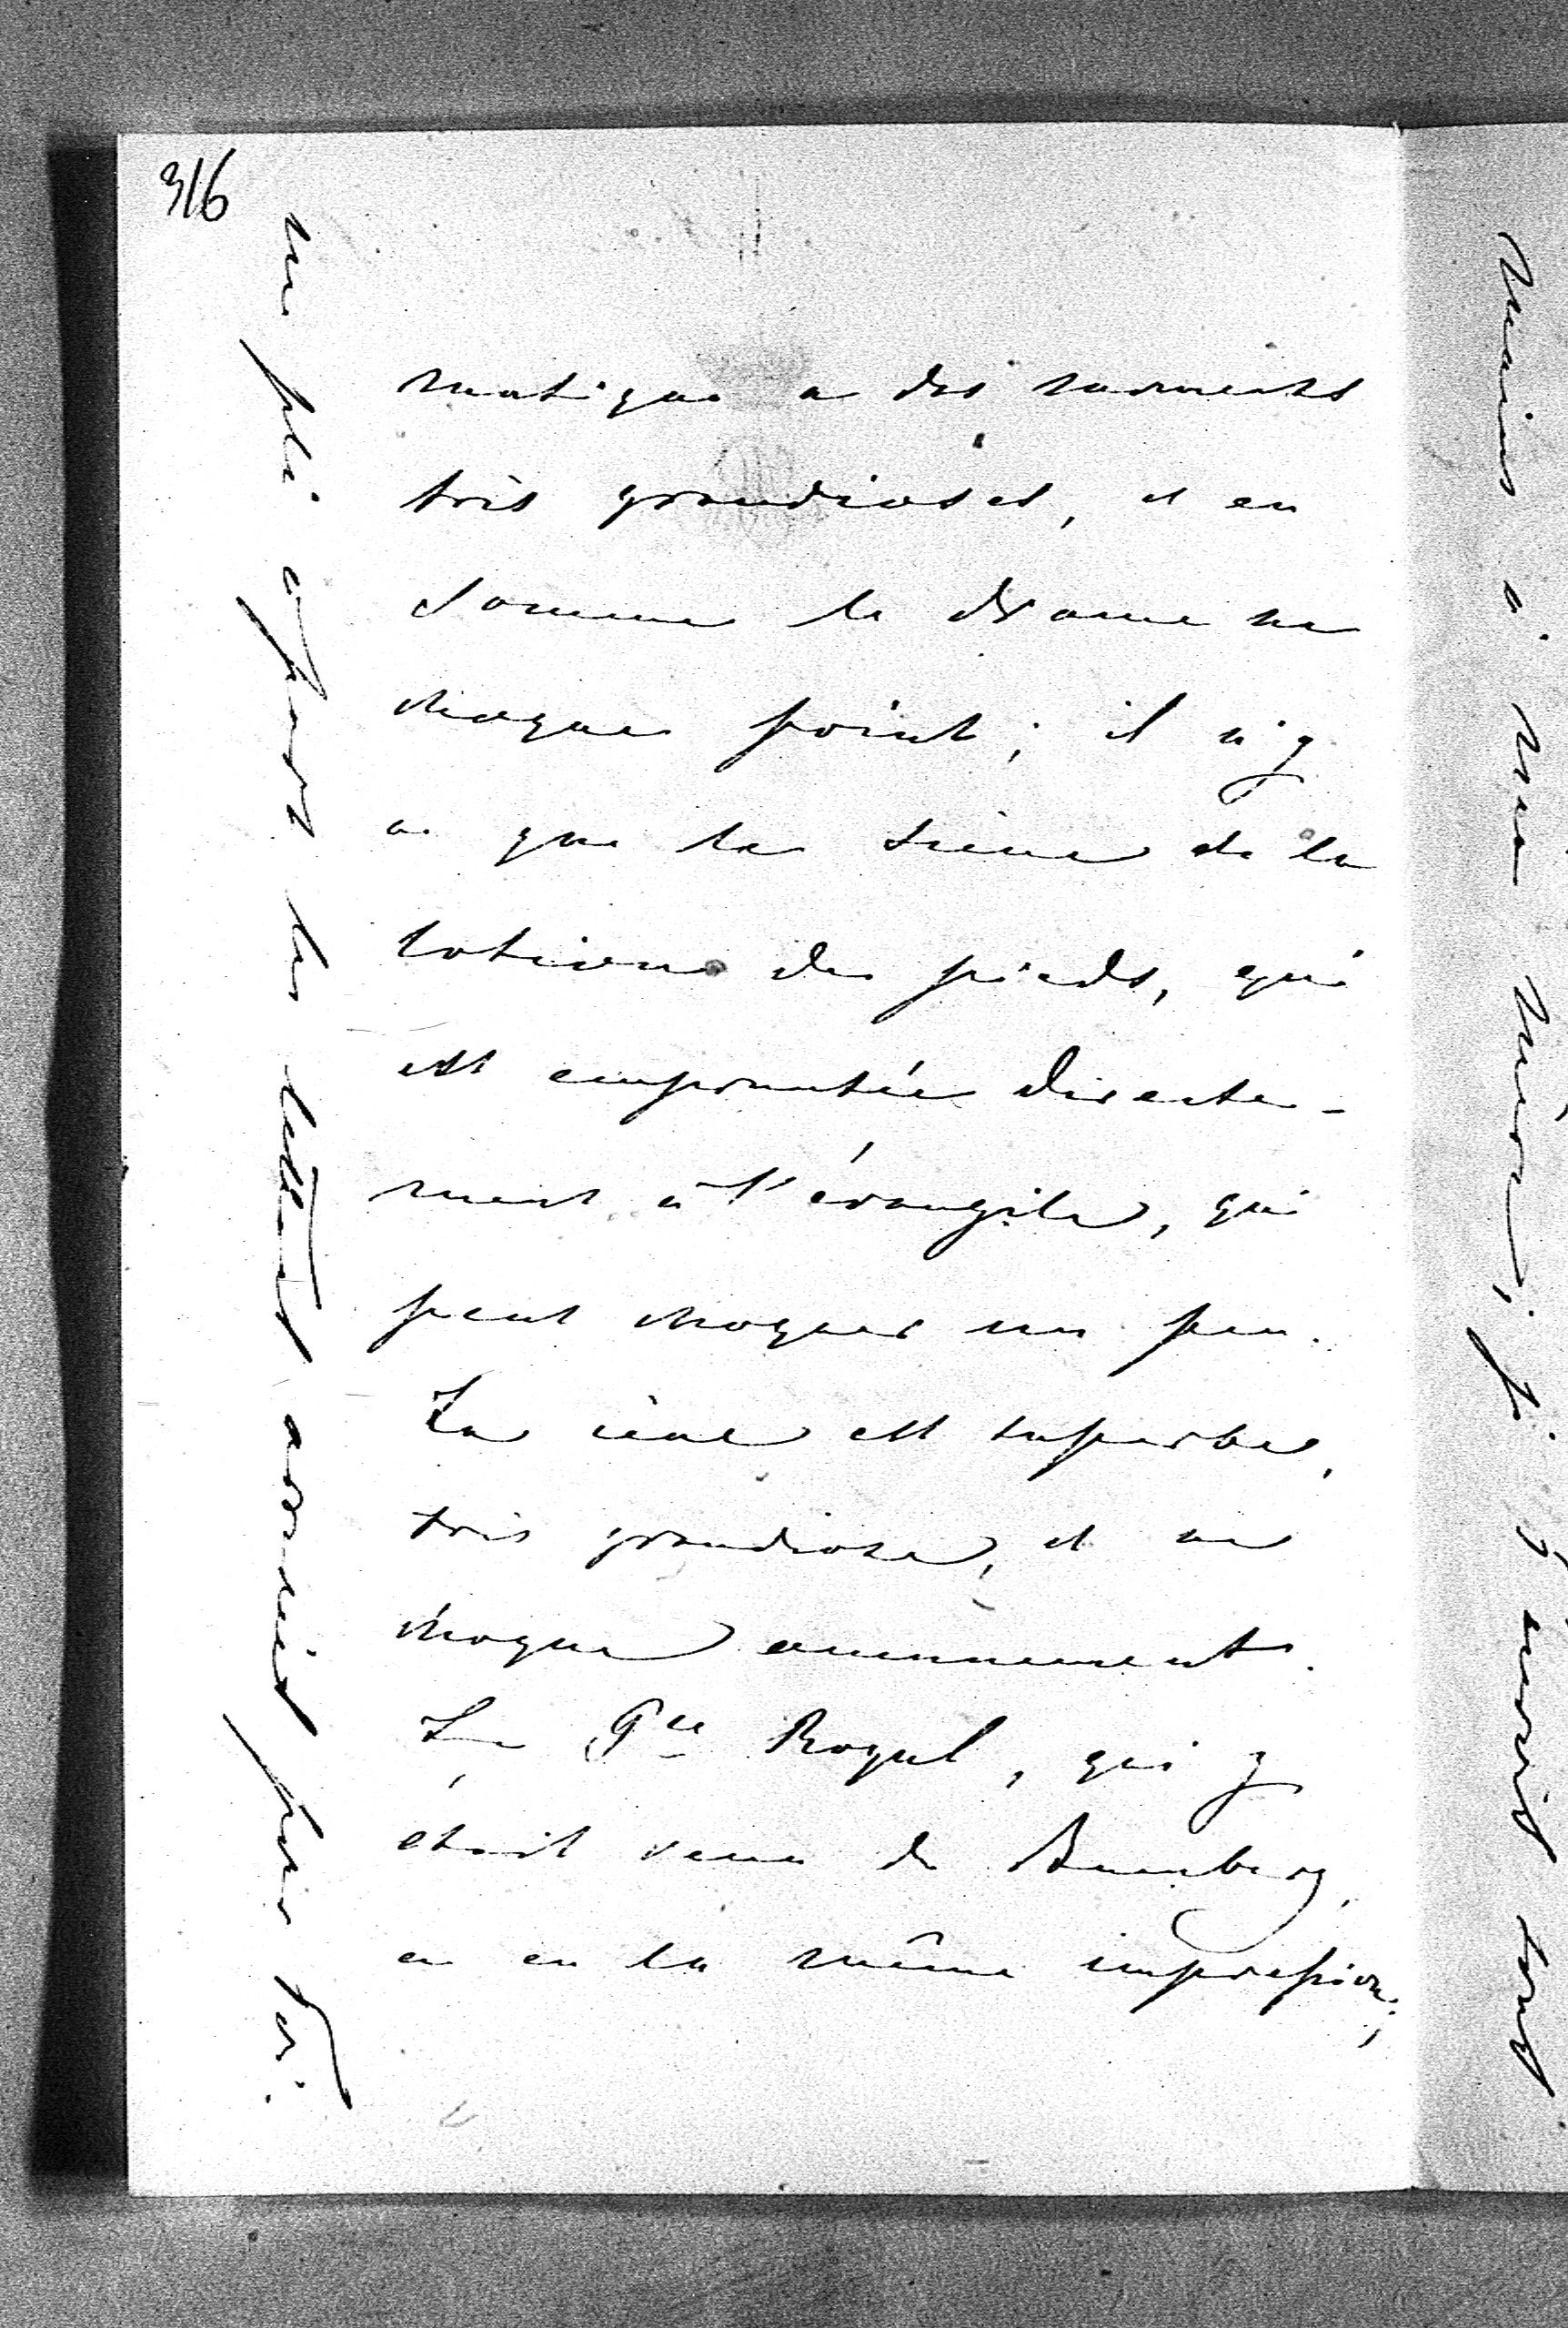 316
matique a des moments
très grandioses, et en
somme le drame ne
choque point; il n'y
a que la scène de la
lotion des pieds, qui
est empruntée directe-
ment à l'évangile, qui
peut choquer un peu.
La cène est superbe,
très grandiose, et ne
choque aucunement.
La Pce Royal, qui y
était venu de Bamberg,
a eu la même impression;
un pli à part les lettres arrivées pour Toi.
mains à ma Mère; j'y suis tout